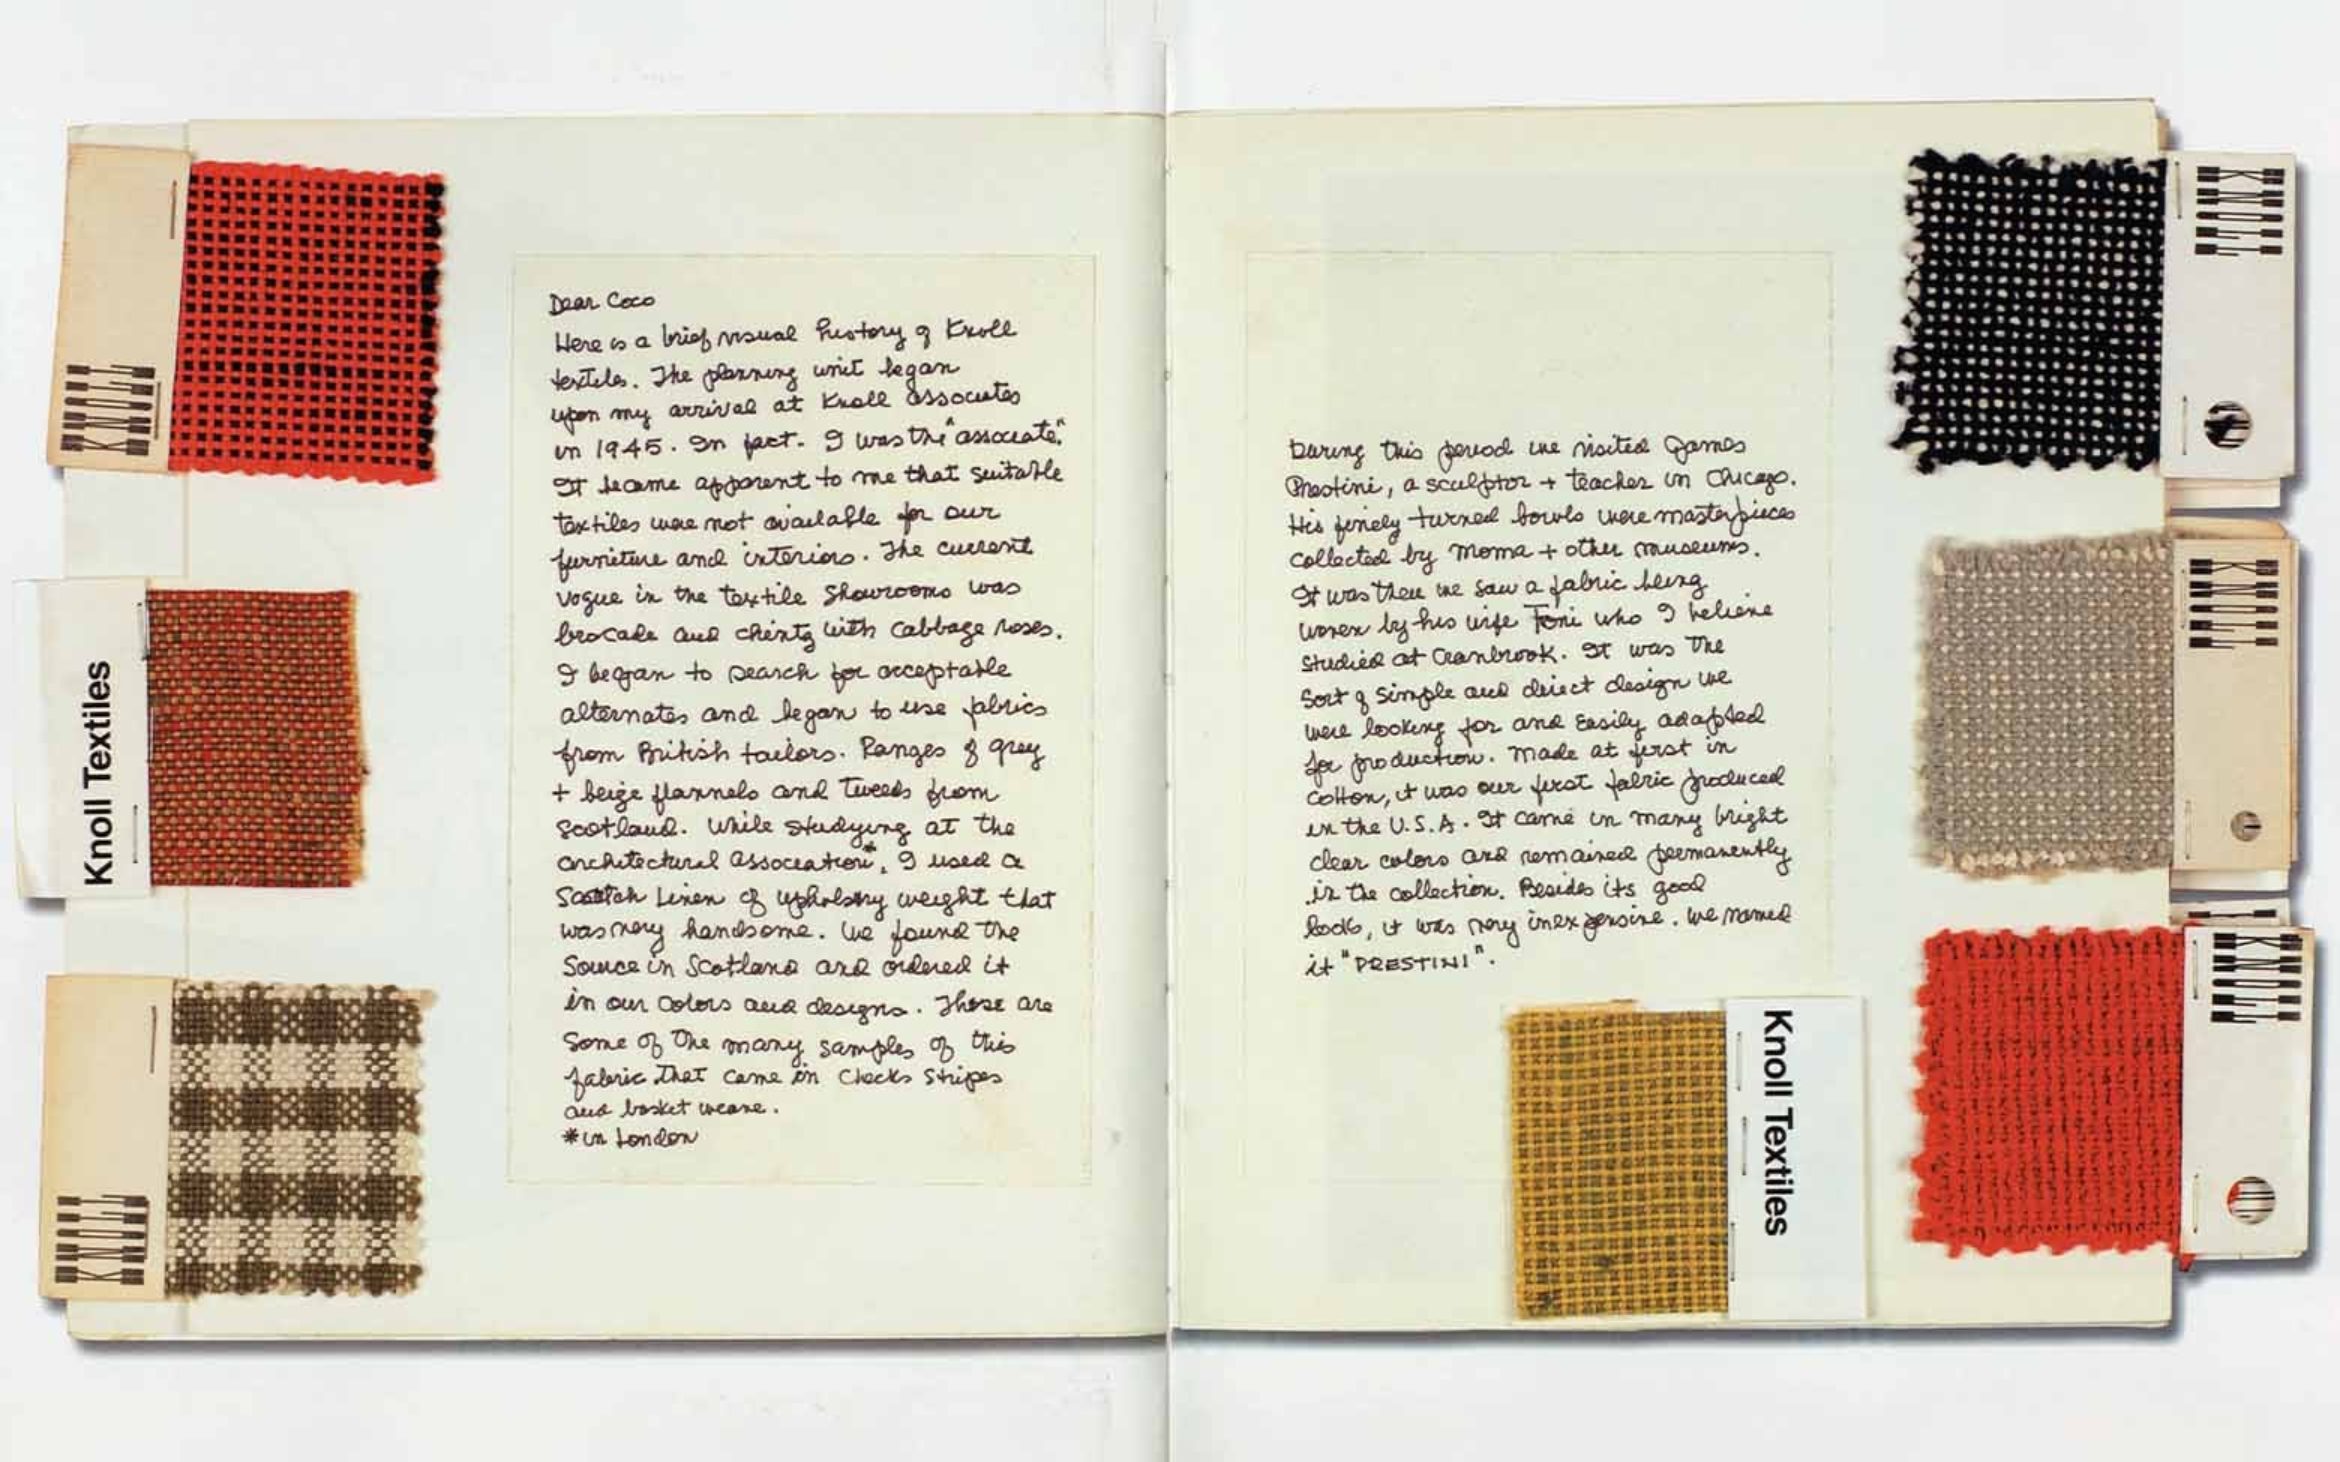 KNOLL
Knoll Textiles
KNOLL
Dear Coco
Here is a brief visual history of Knoll
textiles. The planning unit began
upon my arrival at Knoll associates
in 1945. In fact. I was the "associate".
It became apparent to me that suitable
textiles were not available for our
furniture and interiors. The current
vogue in the textile showrooms was
brocade and chintz with cabbage roses.
I began to search for acceptable
alternates and began to use fabrics
from British tailors. Ranges of grey
+ beige flannels and tweeds from
Scotland. While studying at the
architectural association*, I used a
Scotch Linen of upholstry weight that
was very handsome. We found the
source in Scotland and ordered it
in our colors and designs. These are
some of the many samples of this
fabric that came in checks stripes
and basket weave.
*in London
During this period we visited James
Prestini, a sculptor + teacher in Chicago.
His finely turned bowls were masterpieces
collected by Moma + other museums.
It was then we saw a fabric being
woven by his wife Toni who I believe
studied at Cranbrook. It was the
sort of simple and direct design we
were looking for and easily adapted
for production. Made at first in
cotton, it was our first fabric produced
in the U.S.A. It came in many bright
clear colors and remained permanently
in the collection. Besides its good
looks, it was very inexpensive. We named
it "PRESTINI".
Knoll Textiles
KNOLL
KNOLL
KNOLL